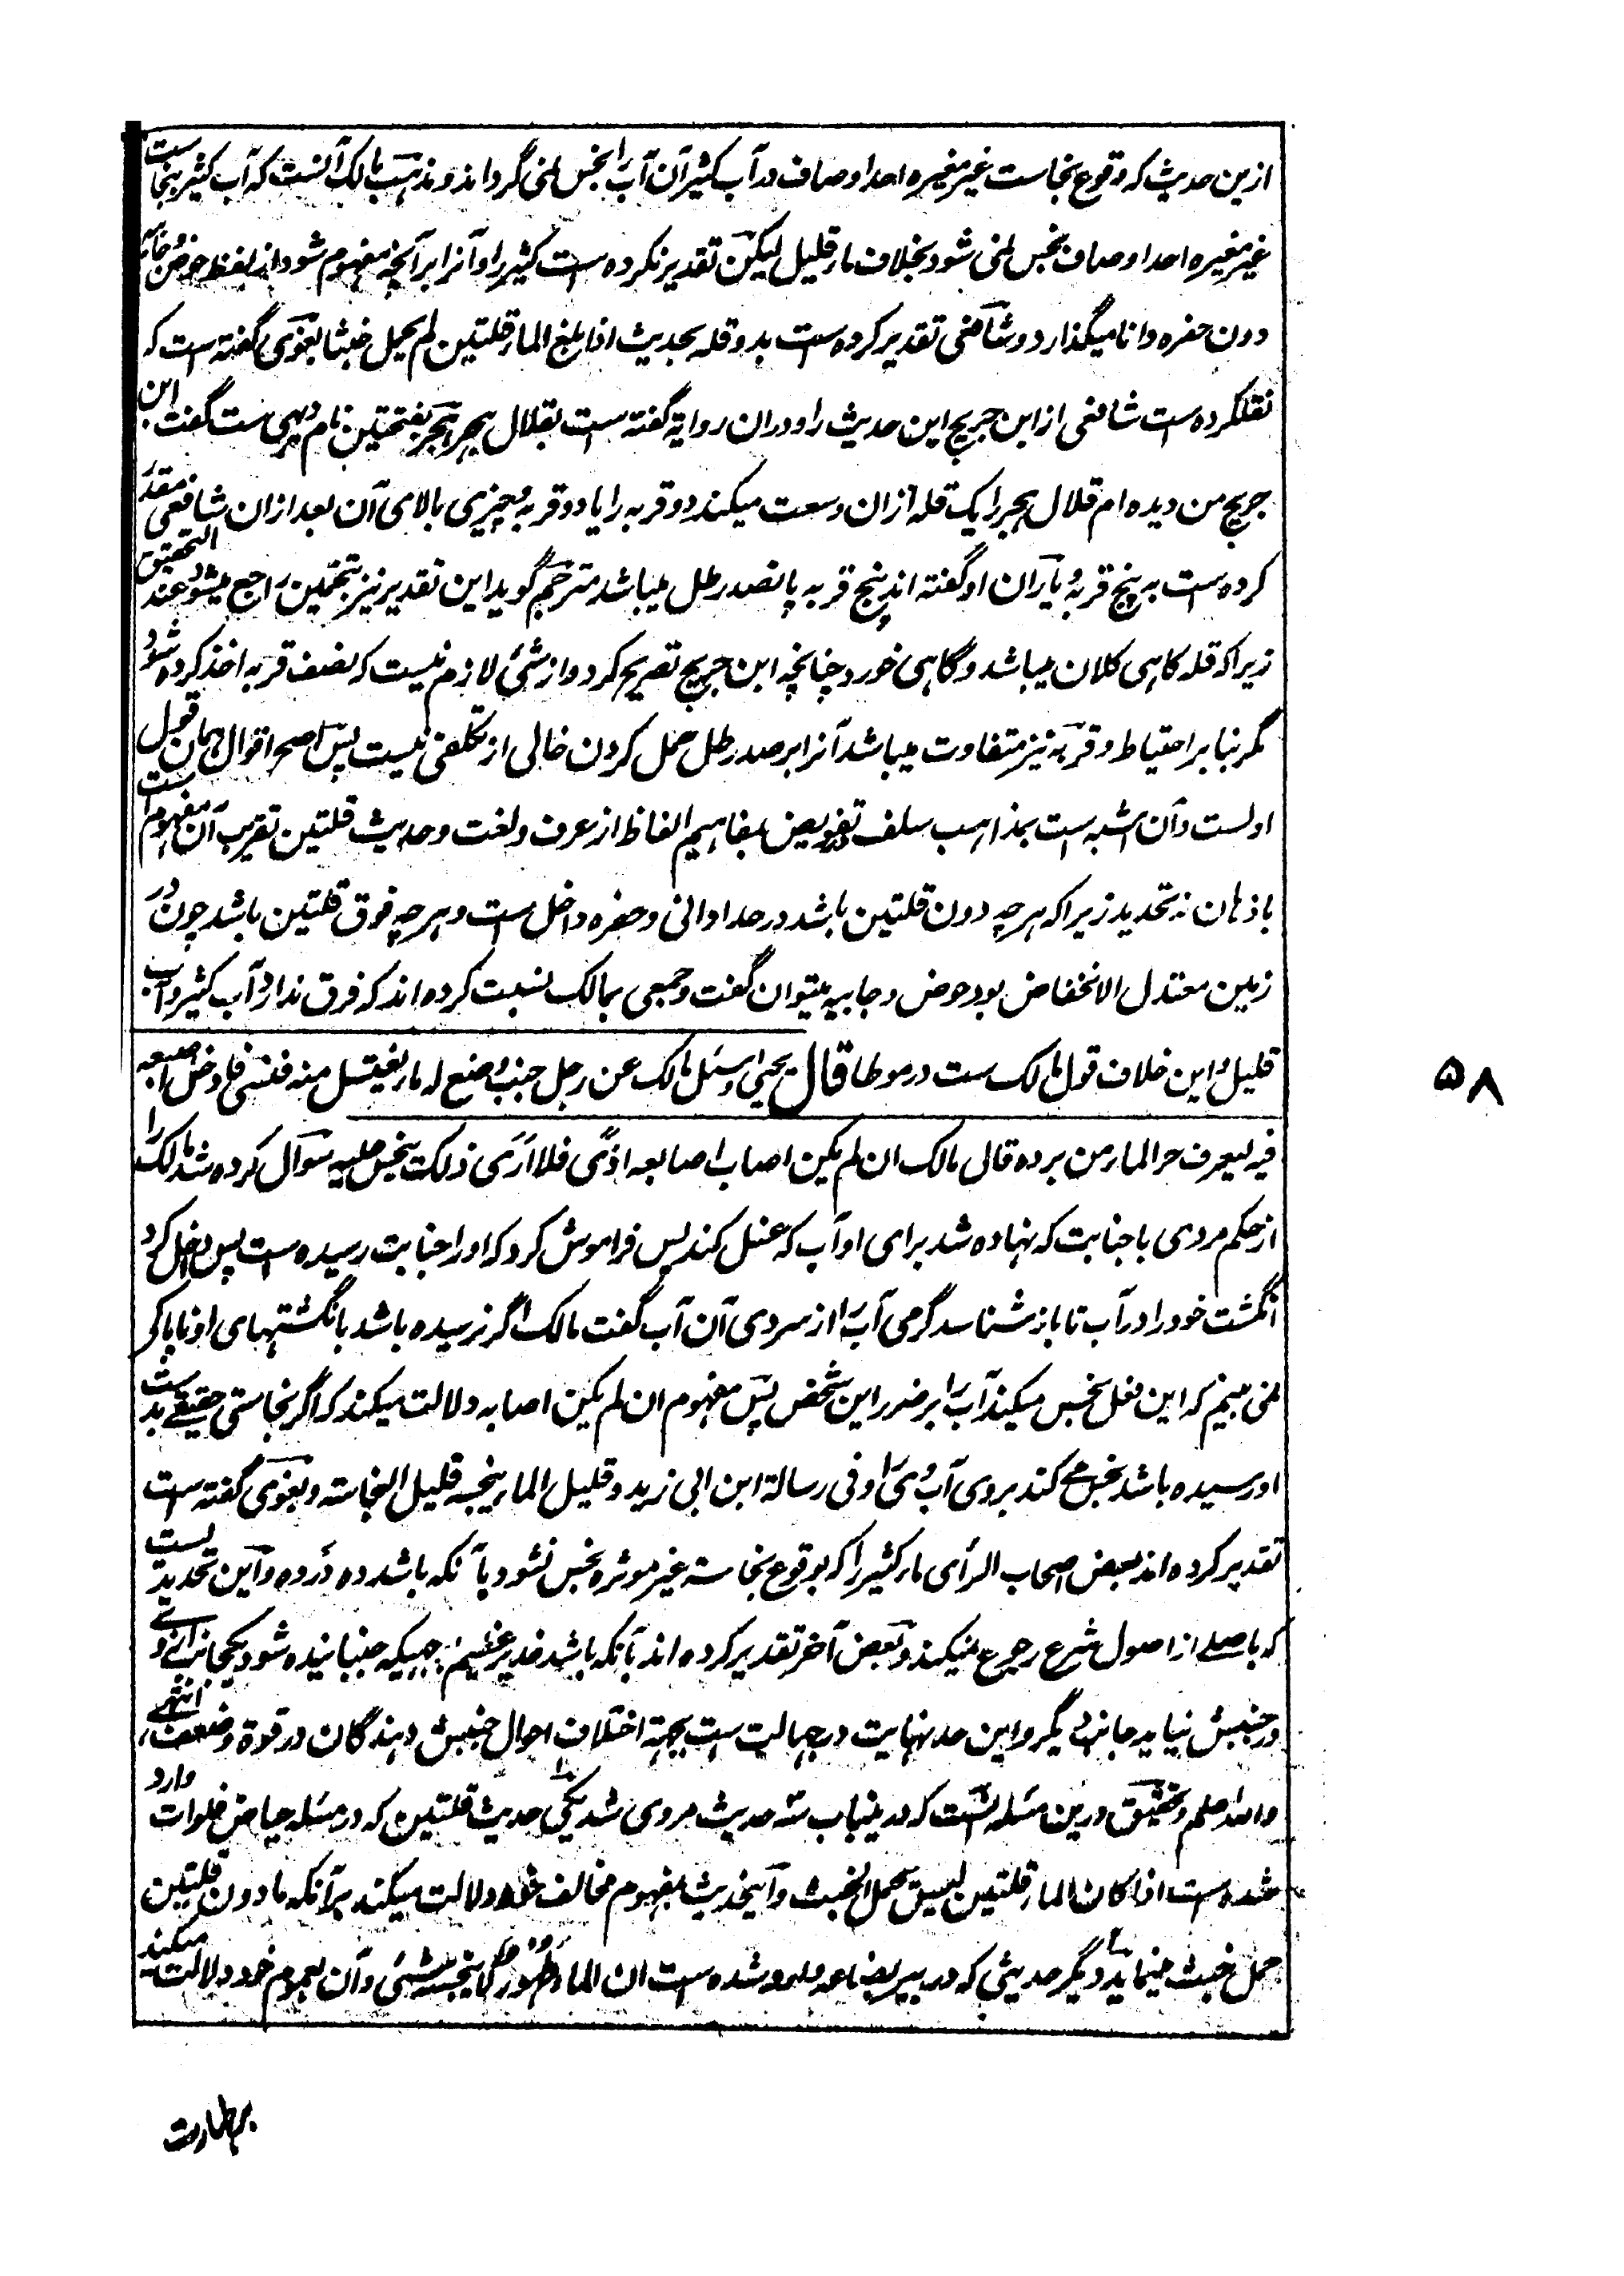 ازین حدیث که وقوع نجاست غیر مغیره احد اوصاف در آب کثیر آن آب را نجس نمی گرداند و مذهب مالک آنست که آب کثیر بنجاست
غیر مغیره احد اوصاف نجس نمی شود بخلاف ماء قلیل لیکن تقدیر نکرده است کثیر را و آنرا بر آنچه مفهوم شود از لفظ حوض و
دون حفره و انا میگذارد و شافعی تقدیر کرده است بدو قله بحدیث اذا بلغ الماء قلتین لم یحمل خبثا بغوی گفته است که
نقلکرده است شافعی از ابن جریج این حدیث را و دران روایة گفته است بقلال هجر و هجر بفتحتین نام دیهی ست گفت ابن
جریج من دیده ام قلال هجر را یک قله ازان وسعت میکند دو قربه را یا دو قربه و چیزی بالای آن بعد ازان شافعی مقدر
کرده است به پنج قربه و یاران او گفته اند پنج قربه پانصد رطل میباشد مترجم گوید این تقدیر نیز بتخمین راجع میشود عند التحقیق
زیرا که قله کاهی کلان میباشد و گاهی خورد چنانچه ابن جریج تصریح کرد و از شئ لازم نیست که نصف قربه اخذ کرده شود
مگر بنا بر احتیاط و قربه نیز متفاوت میباشد آنرا بر صد رطل حمل کردن خالی از تکلفی نیست پس اصح اقوال همان قول
اولست و آن اشبه است بمذاهب سلف تفویض بمفاهیم الفاظ از عرف و لغت و حدیث قلتین تقریب آن مفهوم است
باذهان نه تحدید زیرا که هر چه دون قلتین باشد در حد اوانی و حفره داخل ست و هر چه فوق قلتین باشد چون در
زمین معتدل الانخفاض بود حوض و جابیه میتوان گفت و جمعی بمالک نسبت کرده اند که فرق ندارد آب کثیر و آب
قلیل و این خلاف قول مالک ست در موطا قال یحیی و سئل مالک عن رجل جنب وضع له ماء یغتسل منه فنسی فادخل اصبعه
فیه لیعرف حر الماء من برده قال مالک ان لم یکن اصاب اصابعه اذًی فلا اری ذلک ینجس علیه سوال کرده شد مالک را
از حکم مردی با جنابت که نهاده شد برای او آب که غسل کند پس فراموش کرد که او را جنابت رسیده است پس داخل کرد
انگشت خود را در آب تا باز شناسد گرمی آب را از سردی آن آب گفت مالک اگر نرسیده باشد بانگشتهای او ناپاکی
نمی بینم که این فعل نجس میکند آب را بر ضرر این شخص پس مفهوم ان لم یکن اصابه دلالت میکند که اگر نجاستی حقیقی بدست
او رسیده باشد نجس می کند بروی آب وی را و فی رسالة ابن ابی زید و قلیل الماء ینجسه قلیل النجاسته و بغوی گفته است
تقدیر کرده اند بعض اصحاب الرأی ماء کثیر را که بوقوع نجاسته غیر موثره نجس نشود بآنکه باشد ده در ده و این تحدیدیست
که باصلی از اصول شرع رجوع نمیکند و بعض آخر تقدیر کرده اند بآنکه باشد غدیر عظیم بحیثیکه جنبانیده شود یکجانب او
در جنبش نیاید جانب دیگر و این حد نهایت در جهالت ست بجهة اختلاف احوال جنبش دهندگان در قوة و ضعف انتهی
والله اعلم و تحقیق درین مسئله آنست که درینباب سه حدیث مروی شد یکی حدیث قلتین که در مسئله حیاض فلوات وارد
شده است اذا کان الماء قلتین لیس یحمل الخبث و اینحدیث بمفهوم مخالف خود دلالت میکند بر آنکه ما دون قلتین
حمل خبث مینماید دیگر حدیثی که در بیر بضاعه وارد شده است ان الماء طهور لا ینجسه شئی و آن بعموم خود دلالت میکند
بر طهارت
۵۸